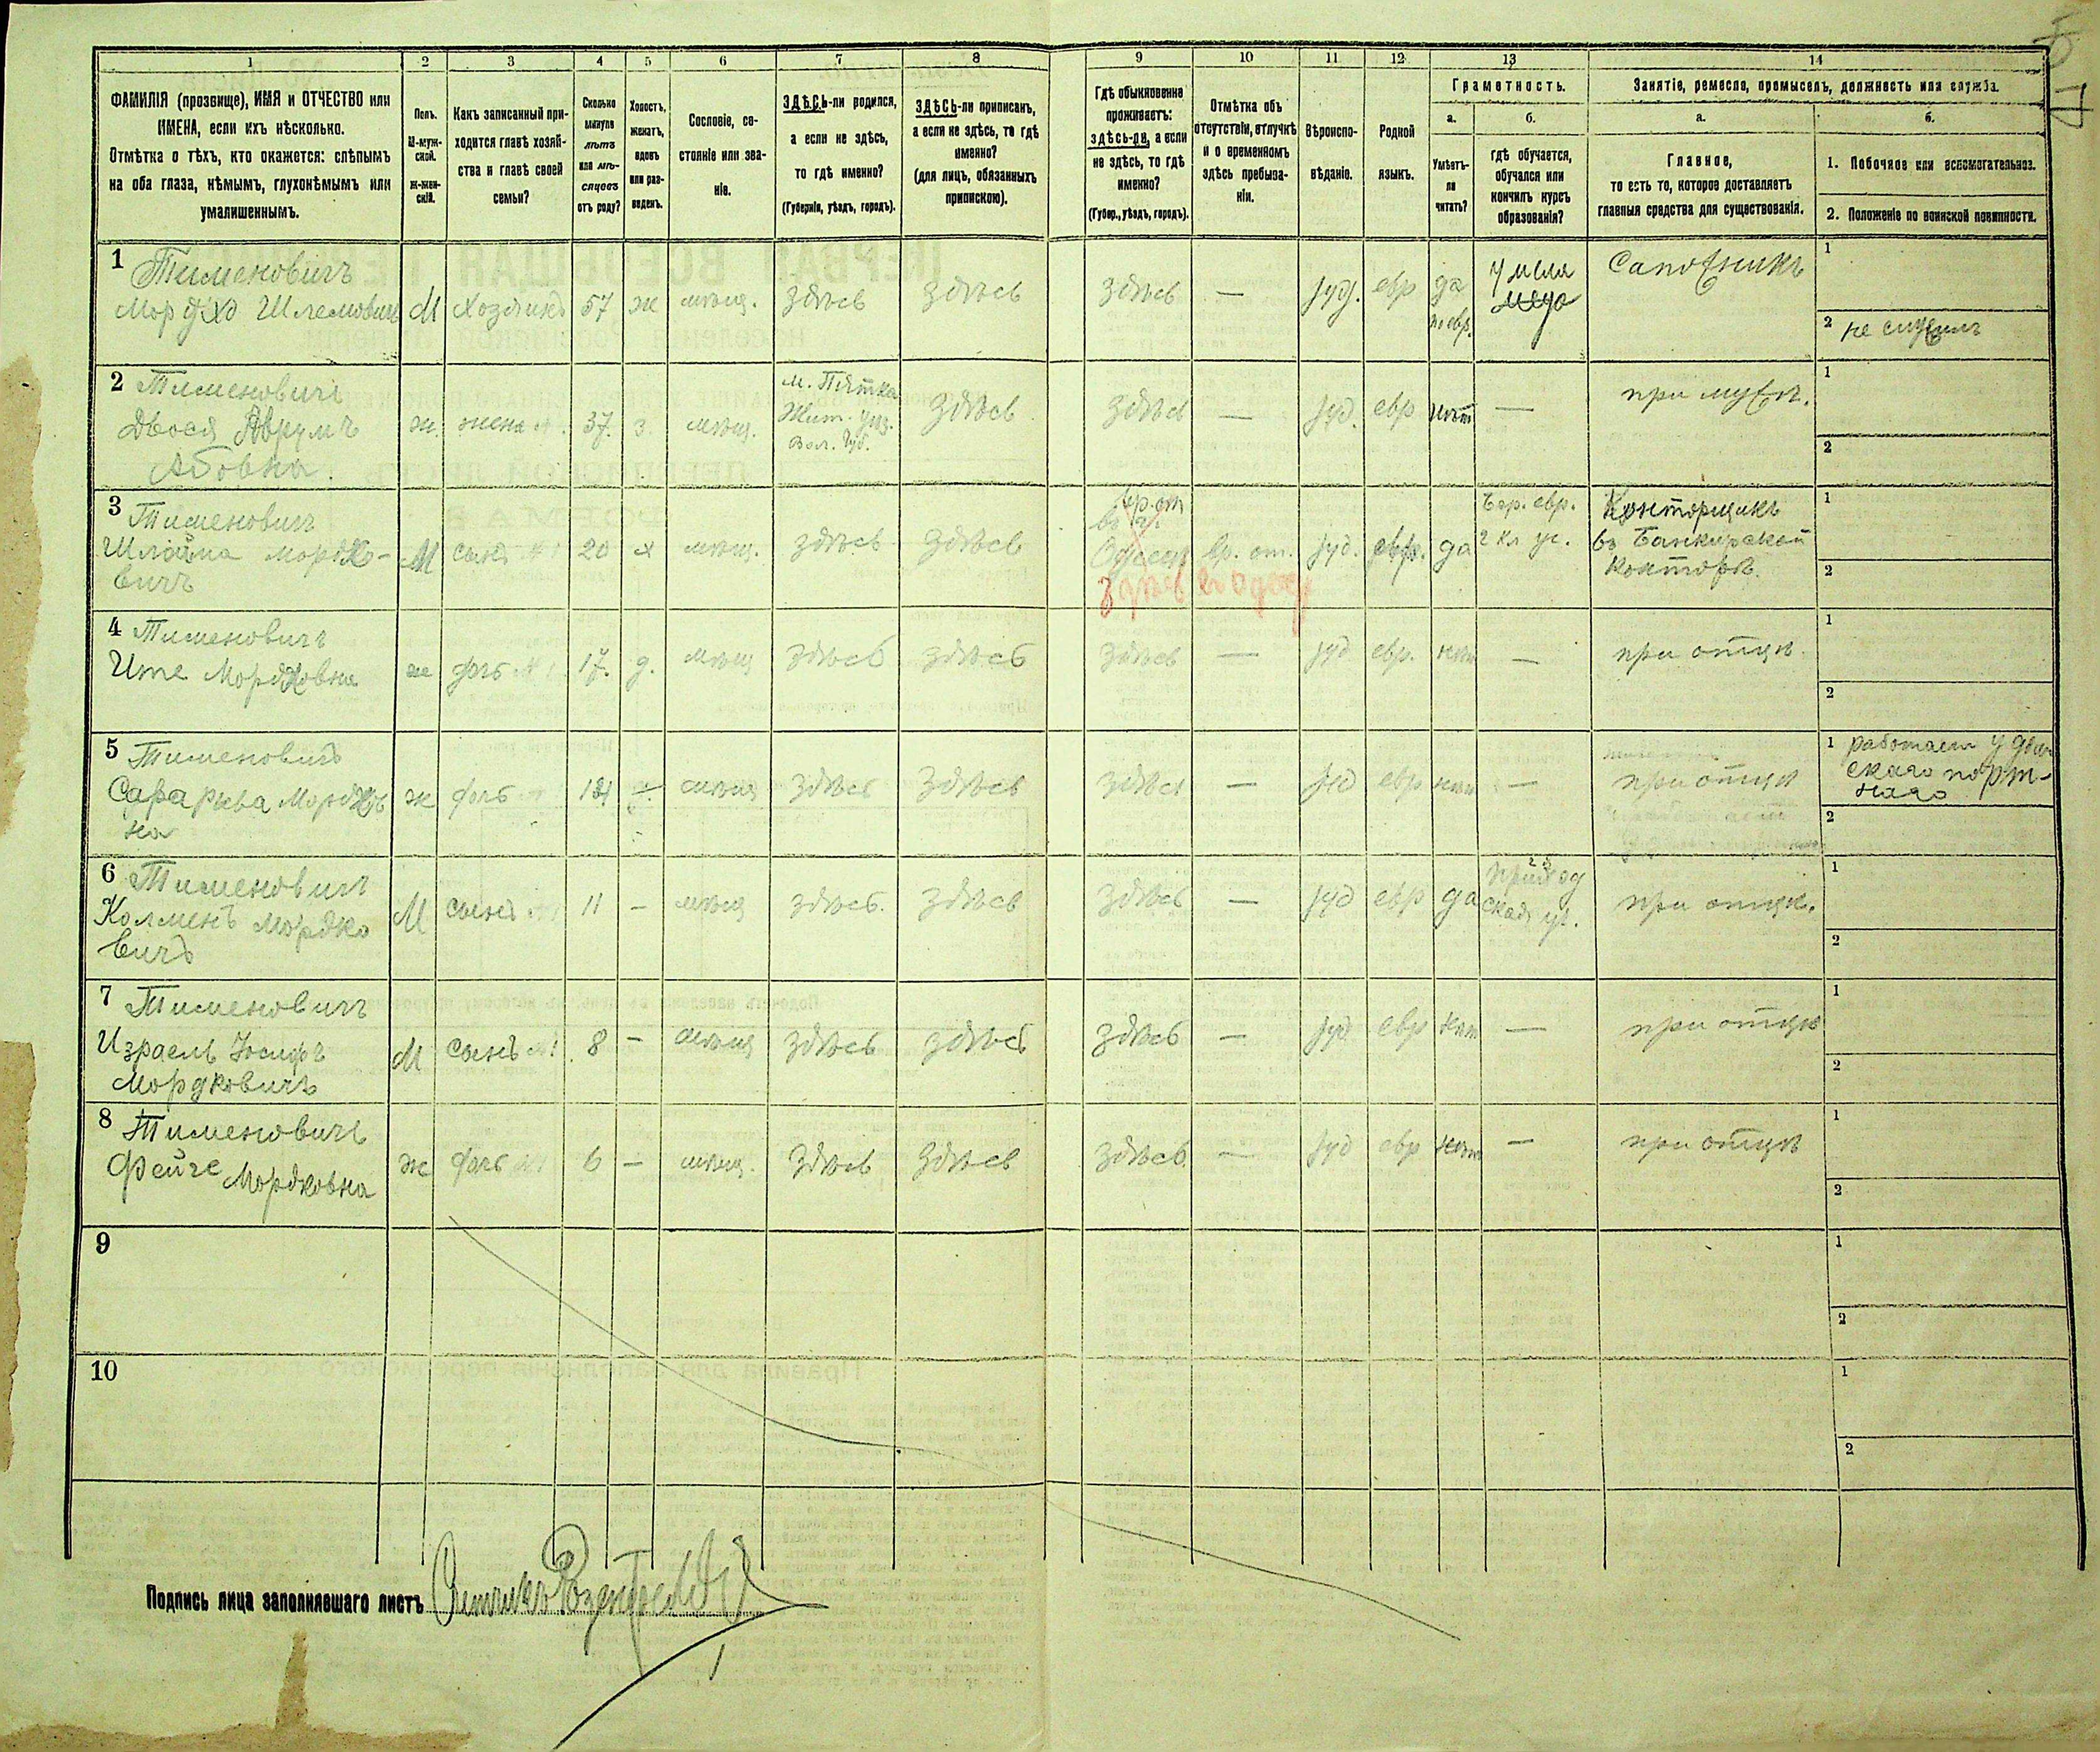 1 2 3 4 5 6 7 8 9 10 11 12 13 14
ФАМИЛІЯ (прозвище), ИМЯ и ОТЧЕСТВО или
ИМЕНА, если ихъ нѣсколько.
Отмѣтка о тѣхъ, кто окажется: слѣпымъ
на оба глаза, нѣмымъ, глухонѣмымъ или
умалишеннымъ.
Полъ.
М-муж-
ской.
Ж-жен-
скій.
Какъ записанный при-
ходится главѣ хозяй-
ства и главѣ своей
семьи?
Сколько
минуло
лѣтъ
или мѣ-
сяцевъ
отъ роду?
Холостъ,
женатъ,
вдовъ
или раз-
веденъ.
Сословіе, со-
стояніе или зва-
ніе.
ЗДѢСЬ-ли родился,
а если не здѣсь,
то гдѣ именно?
(Губернія, уѣздъ, городъ).
ЗДѢСЬ-ли приписанъ,
а если не здѣсь, то гдѣ
именно?
(для лицъ, обязанныхъ
припискою).
Гдѣ обыкновенно
проживаетъ:
здѣсь-ли, а если
не здѣсь, то гдѣ
именно?
(Губер., уѣздъ, городъ).
Отмѣтка объ
отсутствіи, отлучкѣ
и о временномъ
здѣсь пребыва-
ніи.
Вѣроиспо-
вѣданіе.
Родной
языкъ.
Грамотность.
а.
Умѣетъ-
ли
читать?
б.
гдѣ обучается,
обучался или
кончилъ курсъ
образованія?
Занятіе, ремесло, промыселъ, должность или служба.
а.
Главное,
то есть то, которое доставляетъ
главныя средства для существованія.
б.
1. Побочное или вспомогательное.
2. Положеніе по воинской повинности.
1 Тименовичъ
Мордхо Шлемовичъ М Хозяинъ 57 ж мѣщ. Здѣсь Здѣсь Здѣсь — іуд. евр да
по евр. Сапожникъ
1
2 не служилъ
2 Тименовичъ
Двося Аврумъ
Абовна
ж. жена №1. 37. З. мѣщ.
м. Пятка
Жит. уѣз.
Вол. Губ.
Здѣсь Здѣсь — іуд. евр нѣт — при мужѣ.
1
2
3 Тименовичъ
Шлойма Мордко-
вичъ
М сынъ №1 20 х мѣщ. здѣсь здѣсь
Одессѣ вр. от. іуд. евр. да
2 кл уч.
Конторщикъ
въ Банкирской
конторѣ.
1
2
4 Тименовичъ
Ите Мордковна ж дочь №1 17. д. мѣщ здѣсь здѣсь здѣсь — іуд евр. нѣт — при отцѣ.
1
2
5 Тименовичъ
Сара Рыва Мордков
на
ж дочь мѣщ здѣсь здѣсь здѣсь — іуд евр нѣт — при отцѣ
1 работает у дам
скаго порт-
наго
2
6 Тименовичъ
Колменъ Мордко
вичъ
М сынъ №1 11 — мѣщ здѣсь. здѣсь здѣсь — іуд евр да
приход
ская уч.
при отцѣ.
1
2
7 Тименовичъ
Израель Іосифъ
Мордковичъ
М сынъ №1 8 — мѣщ здѣсь здѣсь здѣсь — іуд евр нѣт — при отцѣ
1
2
8 Тименовичъ
Фейге Мордковна ж дочь №1 6 — мѣщ. здѣсь здѣсь здѣсь — іуд евр нѣт — при отцѣ
1
2
9
1
2
10
1
2
Подпись лица заполнявшаго листъ Счетчикъ Розенфельдъ